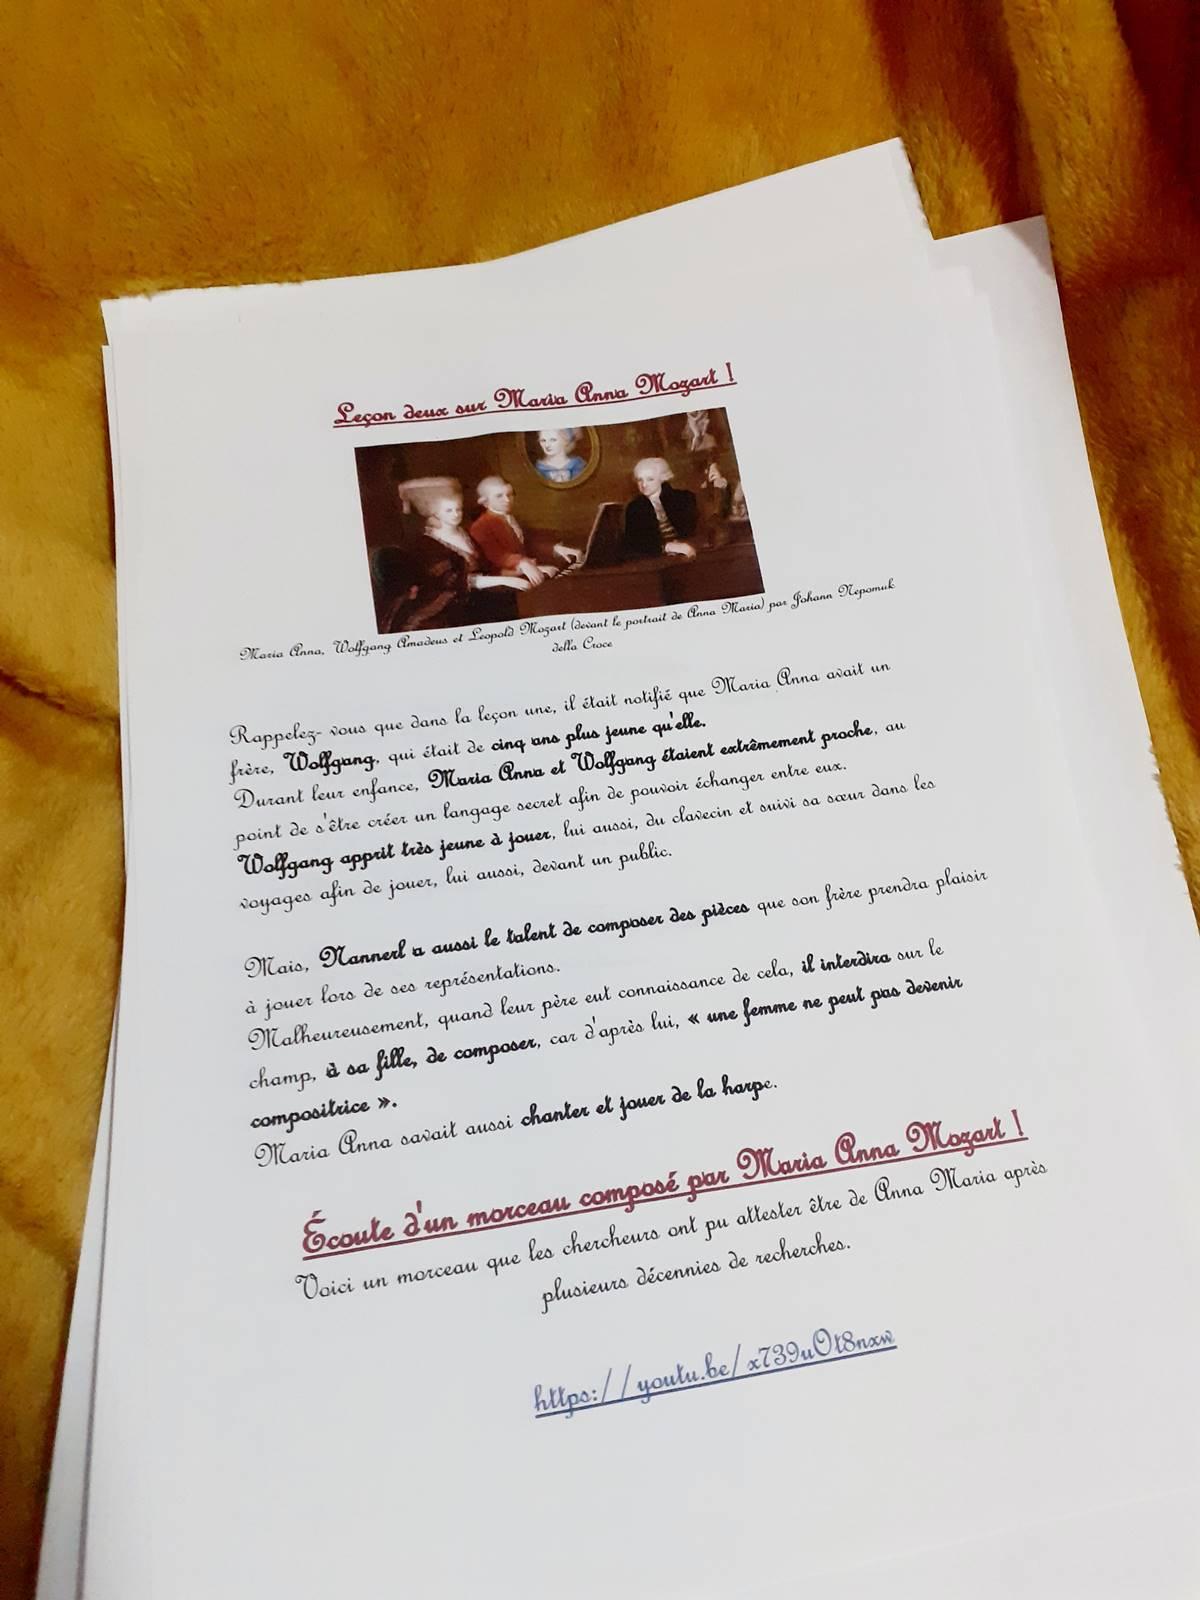 Leçon deux sur Maria Anna Mozart !
Maria Anna, Wolfgang Amadeus et Leopold Mozart (devant le portrait de Anna Maria) par Johann Nepomuk
della Croce
Rappelez- vous que dans la leçon une, il était notifié que Maria Anna avait un
frère, Wolfgang, qui était de cinq ans plus jeune qu'elle.
Durant leur enfance, Maria Anna et Wolfgang étaient extrêmement proche, au
point de s'être créer un langage secret afin de pouvoir échanger entre eux.
Wolfgang apprit très jeune à jouer, lui aussi, du clavecin et suivi sa sœur dans les
voyages afin de jouer, lui aussi, devant un public.
Mais, Nannerl a aussi le talent de composer des pièces que son frère prendra plaisir
à jouer lors de ses représentations.
Malheureusement, quand leur père eut connaissance de cela, il interdira sur le
champ, à sa fille, de composer, car d'après lui, « une femme ne peut pas devenir
compositrice ».
Maria Anna savait aussi chanter et jouer de la harpe.
Écoute d'un morceau composé par Maria Anna Mozart !
Voici un morceau que les chercheurs ont pu attester être de Anna Maria après
plusieurs décennies de recherches.
https://youtu.be/x739uOt8nxw